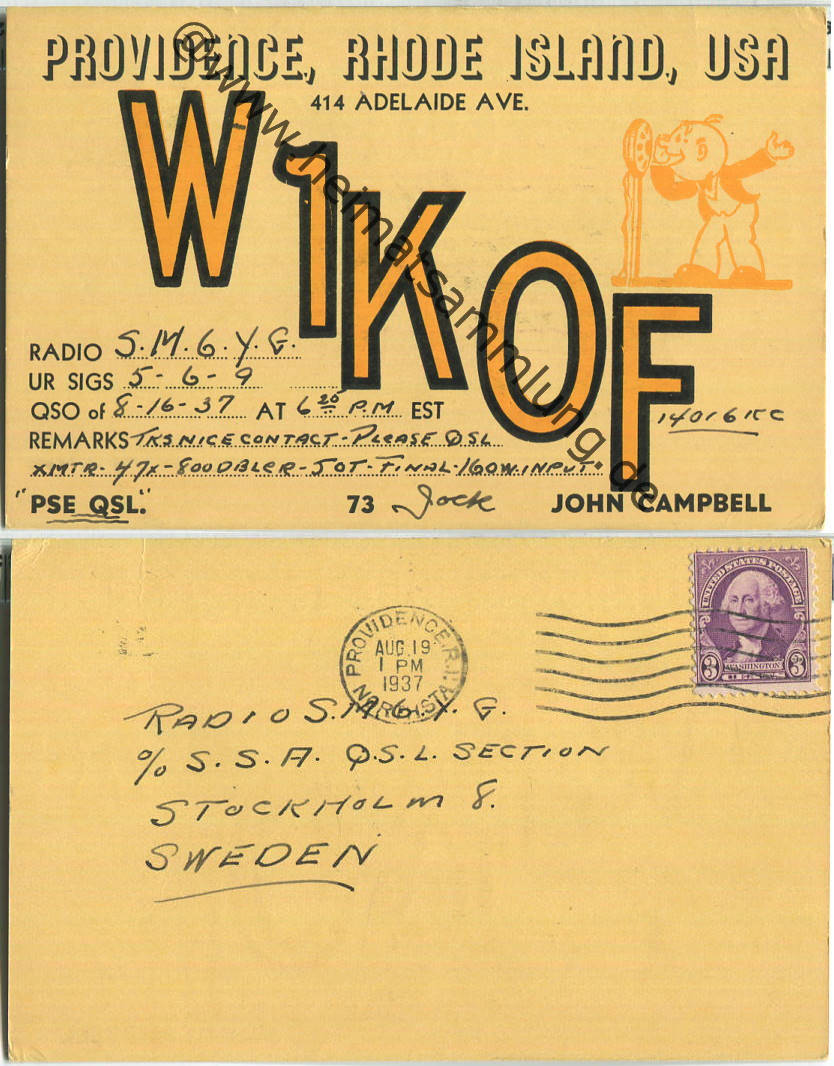 PROVIDENCE, RHODE ISLAND, USA
414 ADELAIDE AVE.
W1KOF
RADIO S.M.6.Y.G.
UR SIGS 5-6-9
QSO of 8-16-37 AT 6 25 P.M. EST
14016 KC
REMARKS TKS NICE CONTACT - PLEASE QSL
XMTR - 47X - 800DBLER - 50T - FINAL - 160W. INPUT.
"PSE QSL." 73 Jock JOHN CAMPBELL
©www.heimatsammlung.de
PROVIDENCE, R.I.
AUG 19
1 PM
1937
NORTH STA.
UNITED STATES POSTAGE
3 WASHINGTON 3
RADIO S.M.6.Y.G.
% S.S.A. Q.S.L. SECTION
STOCKHOLM 8.
SWEDEN